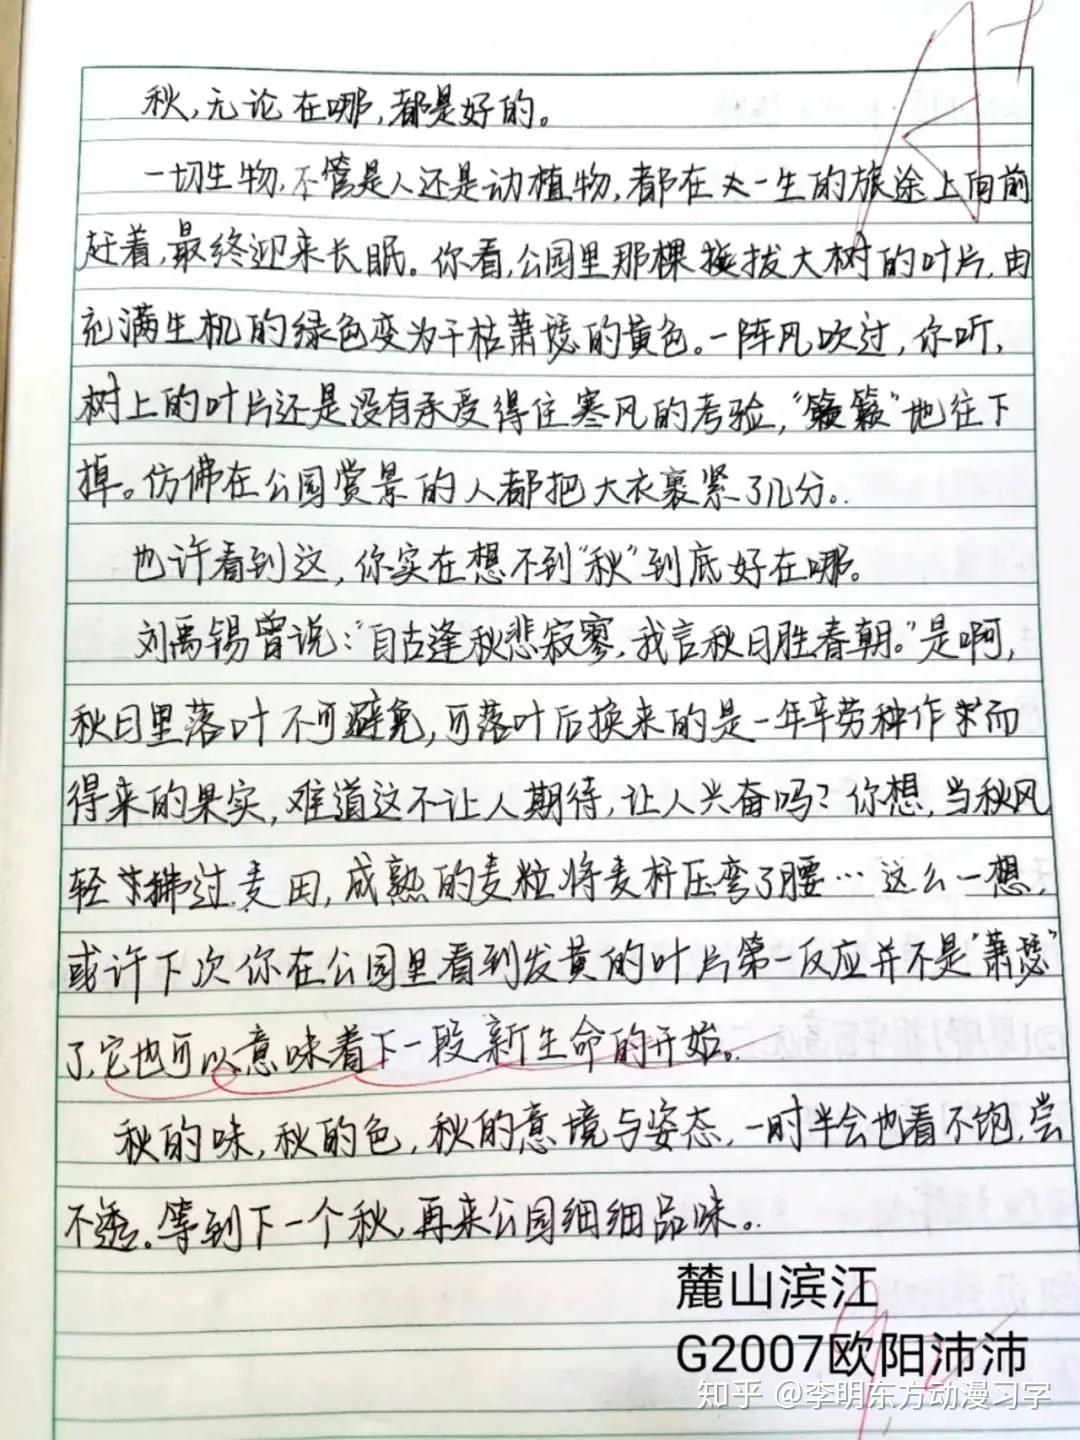 A+
秋,无论在哪,都是好的。
一切生物,不管是人还是动植物,都在一生的旅途上向前
赶着,最终迎来长眠。你看,公园里那棵挺拔大树的叶片,由
充满生机的绿色变为干枯萧瑟的黄色。一阵风吹过,你听,
树上的叶片还是没有承受得住寒风的考验,“簌簌”地往下
掉。仿佛在公园赏景的人都把大衣裹紧了几分。
也许看到这,你实在想不到“秋”到底好在哪。
刘禹锡曾说:“自古逢秋悲寂寥,我言秋日胜春朝。”是啊,
秋日里落叶不可避免,可落叶后换来的是一年辛劳种作而
得来的果实,难道这不让人期待,让人兴奋吗?你想,当秋风
轻拂过麦田,成熟的麦粒将麦杆压弯了腰…这么一想,
或许下次你在公园里看到发黄的叶片第一反应并不是“萧瑟”
了,它也可以意味着下一段新生命的开始。
秋的味,秋的色,秋的意境与姿态,一时半会也看不饱,尝
不透。等到下一个秋,再来公园细细品味。
麓山滨江
G2007欧阳沛沛
知乎 @李明东方动漫习字